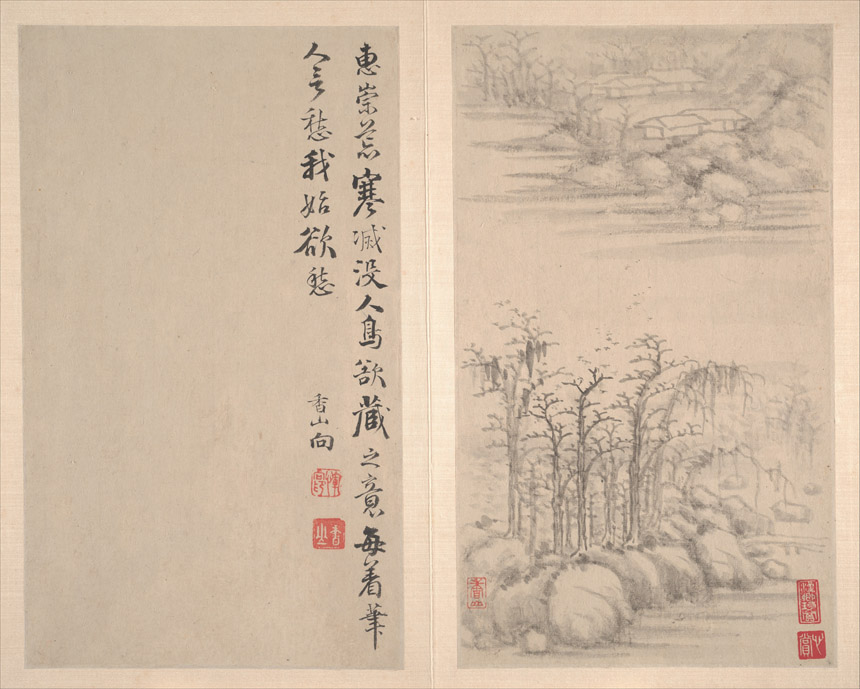 惠崇荒寒滅没人鳥欲藏之意每着筆
人言愁我始欲愁
香山向
香山